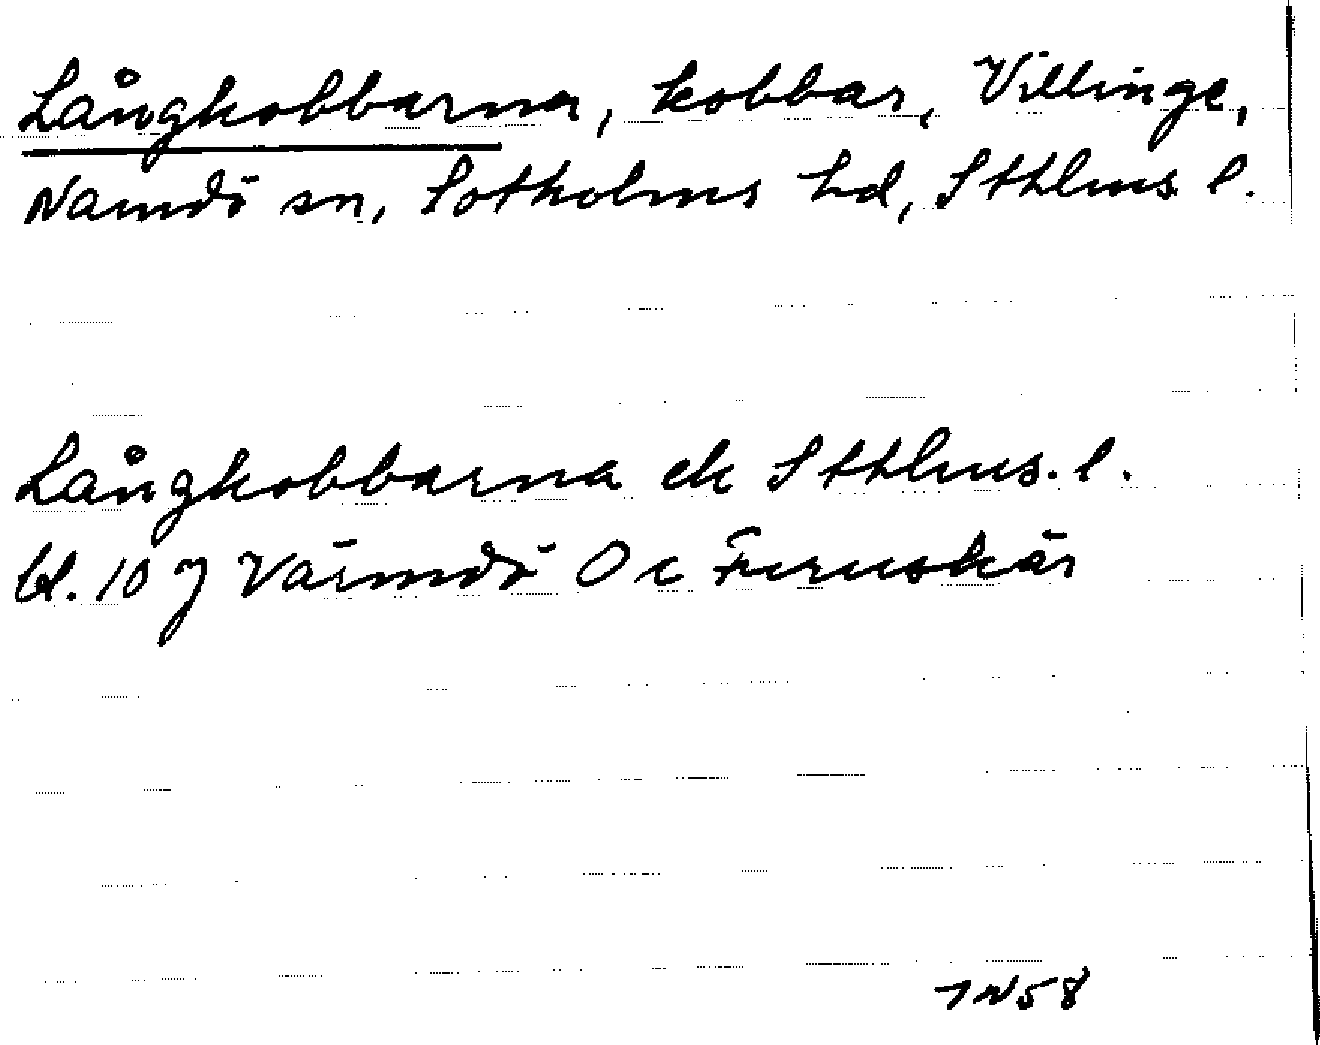 Långkobbarna, kobbar, Villinge,
Namdö sn, Sotholms hd, Sthlms l.
Långkobbarna ek Sthlms. l.
bl. 107 Värmdö O c Furuskär
7N58